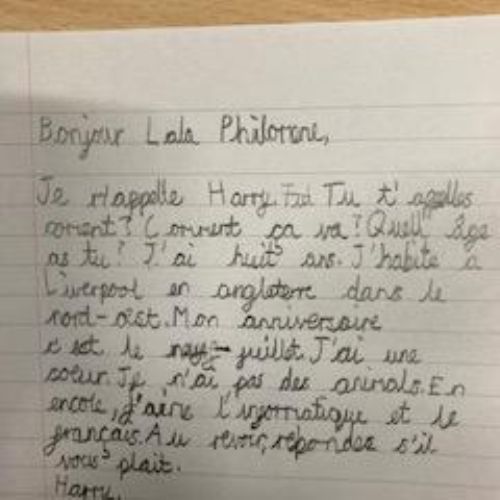 Bonjour Lala Philomene,
Je m'appelle Harry. Tu t'
coment? Comment ça va? Quell âge
as tu? J'ai huit ans. J'habite à
Liverpool en angleterre dans le
nord-oest. Mon anniversaire
c'est le juillet. J'ai une
soeur. Je n'ai pas des animals. En
encole, j'aime l'informatique et le
français. Au revoir, répondez s'il
vous plait.
Harry.